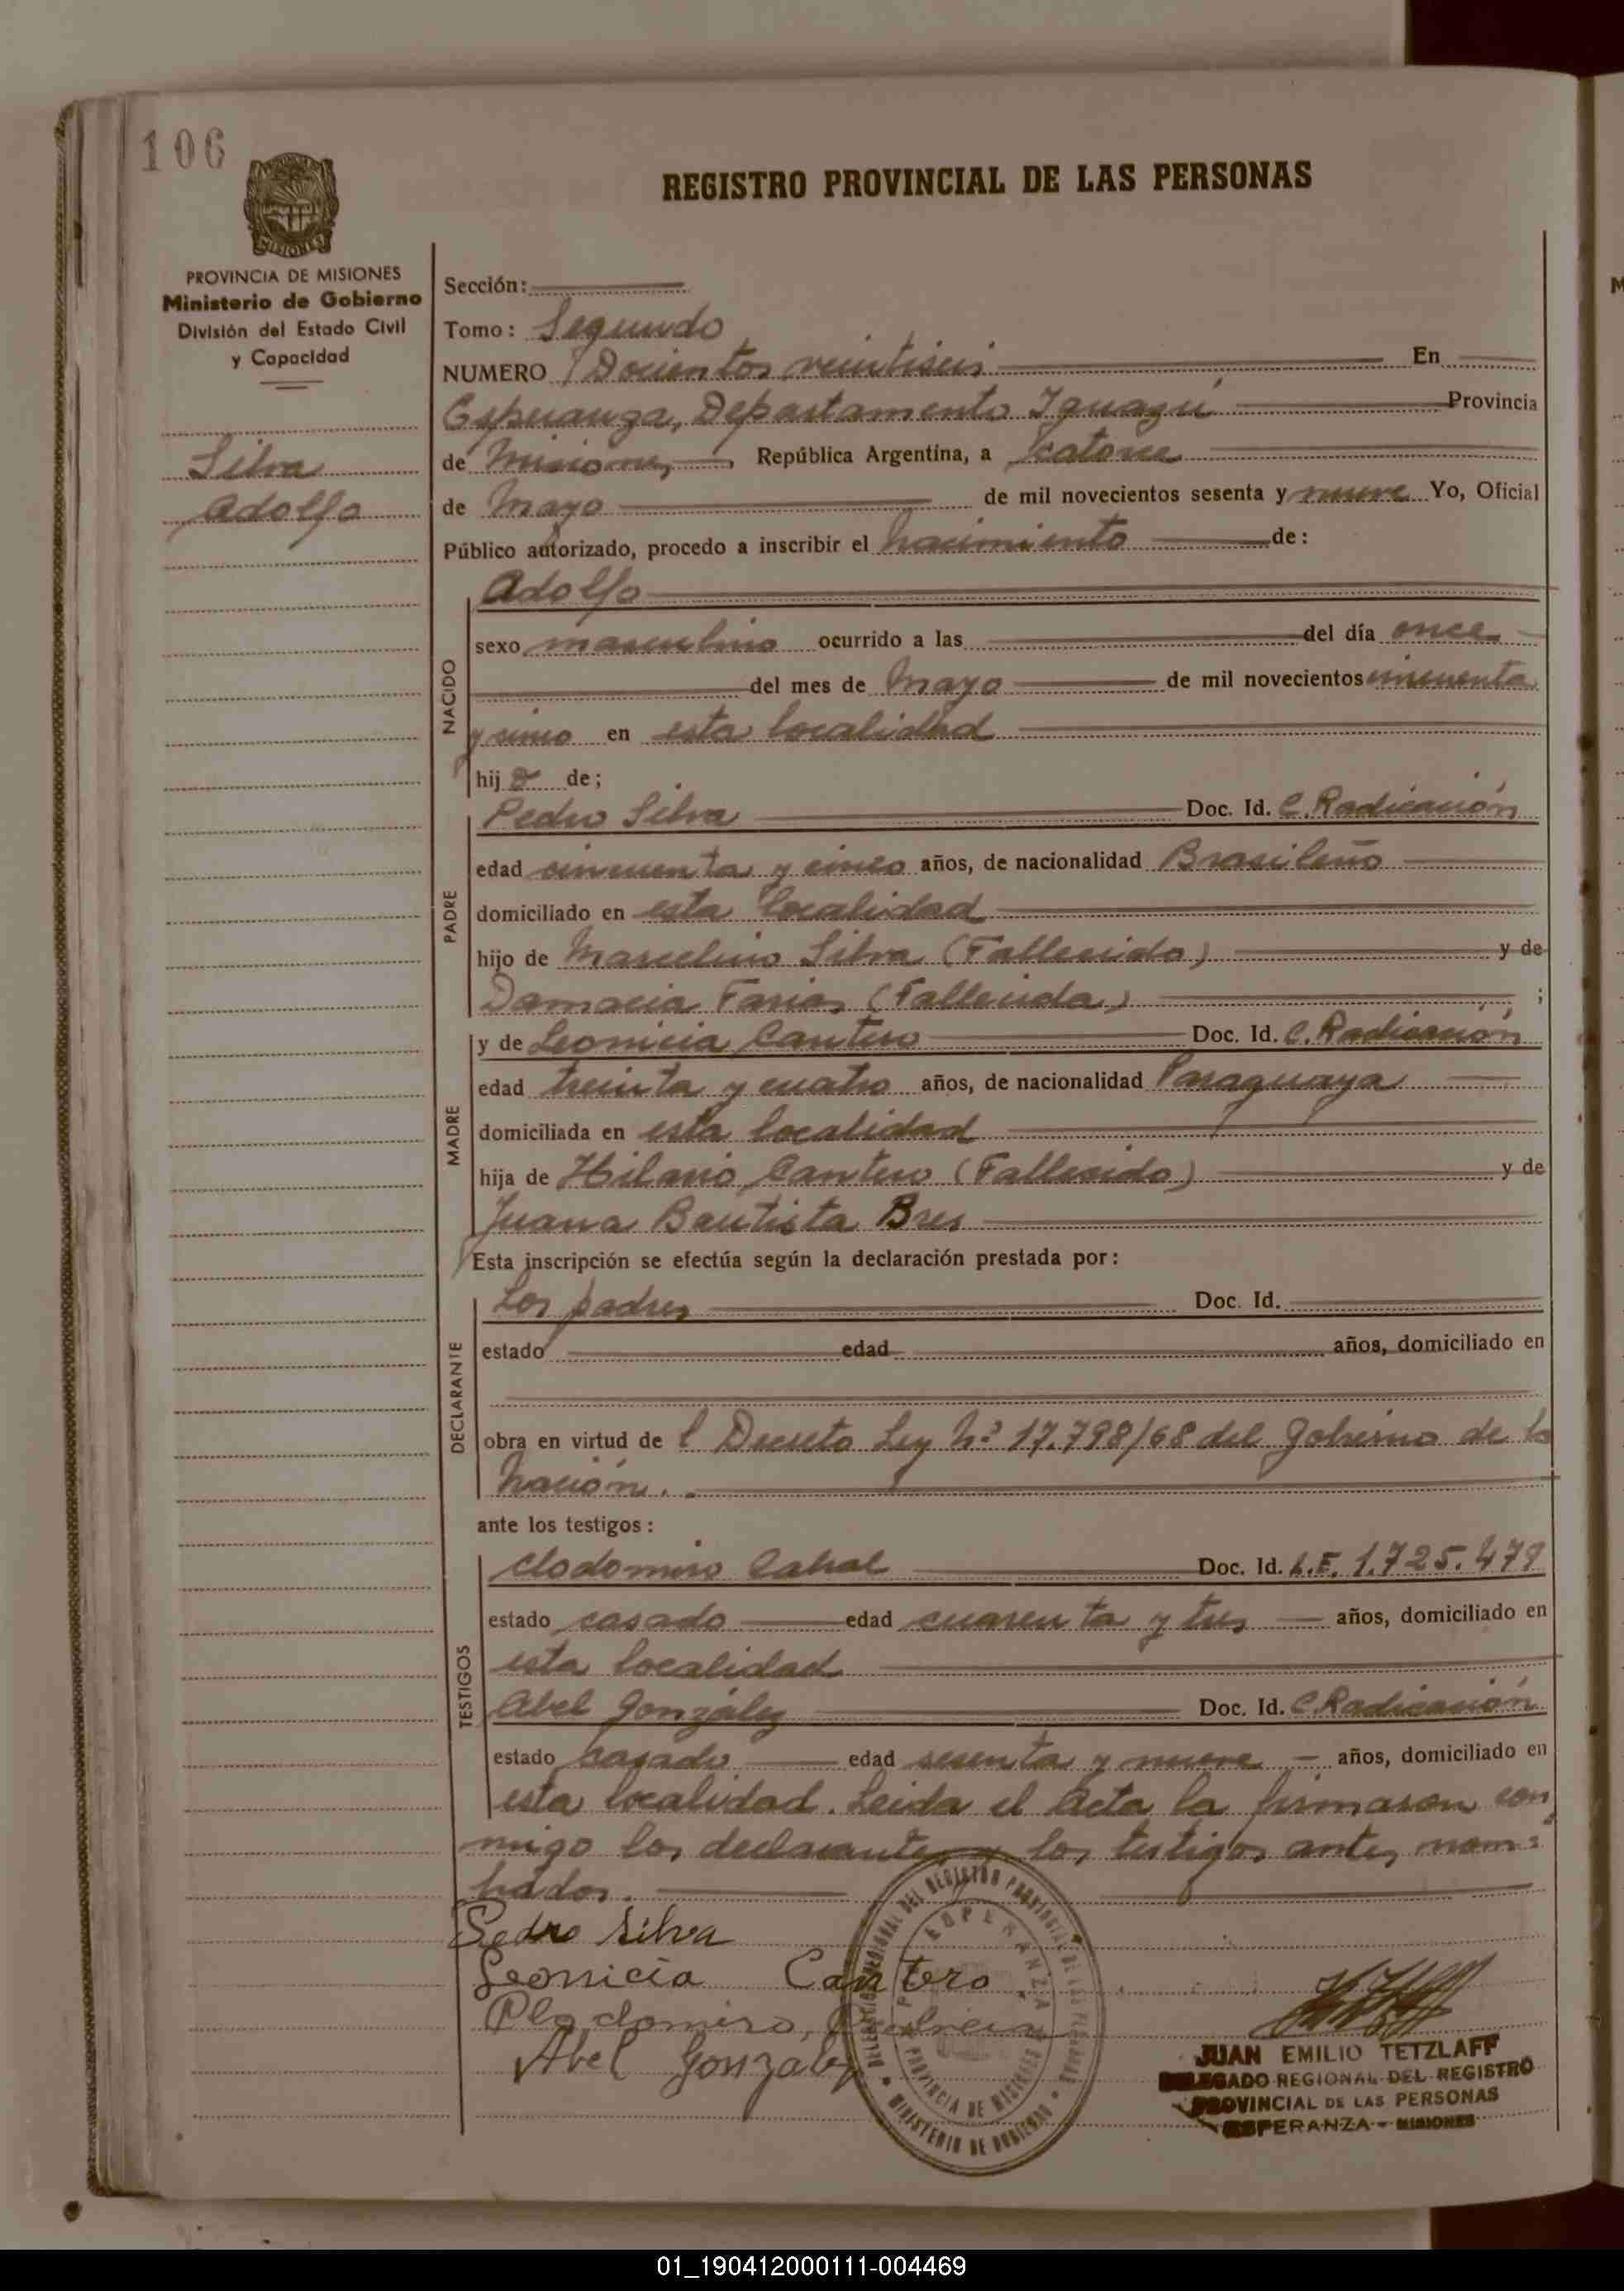 106
REGISTRO PROVINCIAL DE LAS PERSONAS
MISIONES
PROVINCIA DE MISIONES
Ministerio de Gobierno
División del Estado Civil
y Capacidad
Silva
Adolfo
Sección:
Tomo: Segundo
NUMERO Docientos veintiseis En
Esperanza, Departamento Iguazú Provincia
de Misiones, República Argentina, a catorce
de Mayo de mil novecientos sesenta y nueve Yo, Oficial
Público autorizado, procedo a inscribir el nacimiento de:
NACIDO
Adolfo
sexo masculino ocurrido a las del día once
del mes de Mayo de mil novecientos cincuenta
y cinco en esta localidad
hijo de;
PADRE
Pedro Silva Doc. Id. C. Radicación
edad cincuenta y cinco años, de nacionalidad Brasileño
domiciliado en esta localidad
hijo de Marcelino Silva (Fallecido) y de
Damacia Farias (Fallecida) ;
MADRE
y de Leonicia Cantero Doc. Id. C. Radicación
edad treinta y cuatro años, de nacionalidad Paraguaya
domiciliada en esta localidad
hija de Hilario Cantero (Fallecido) y de
Juana Bautista Bres
Esta inscripción se efectúa según la declaración prestada por:
DECLARANTE
Los padres Doc. Id.
estado edad años, domiciliado en
obra en virtud de l Decreto Ley Nº 17.798/68 del Gobierno de la
Nación.
ante los testigos:
TESTIGOS
Clodomiro Cabral Doc. Id. L.E. 1.725.479
estado casado edad cuarenta y tres años, domiciliado en
esta localidad
Abel González Doc. Id. C. Radicación
estado casado edad sesenta y nueve años, domiciliado en
esta localidad. Leida el Acta la firmaron con
migo los declarantes y los testigos antes nom=
brados.
Pedro Silva
Leonicia Cantero
Clodomiro,
Abel Gonzalez
DELEGACION REGIONAL DEL REGISTRO PROVINCIAL DE LAS PERSONAS
ESPERANZA
PROVINCIA DE MISIONES
MINISTERIO DE GOBIERNO
JUAN EMILIO TETZLAFF
DELEGADO REGIONAL DEL REGISTRO
PROVINCIAL DE LAS PERSONAS
ESPERANZA - MISIONES
01_190412000111-004469